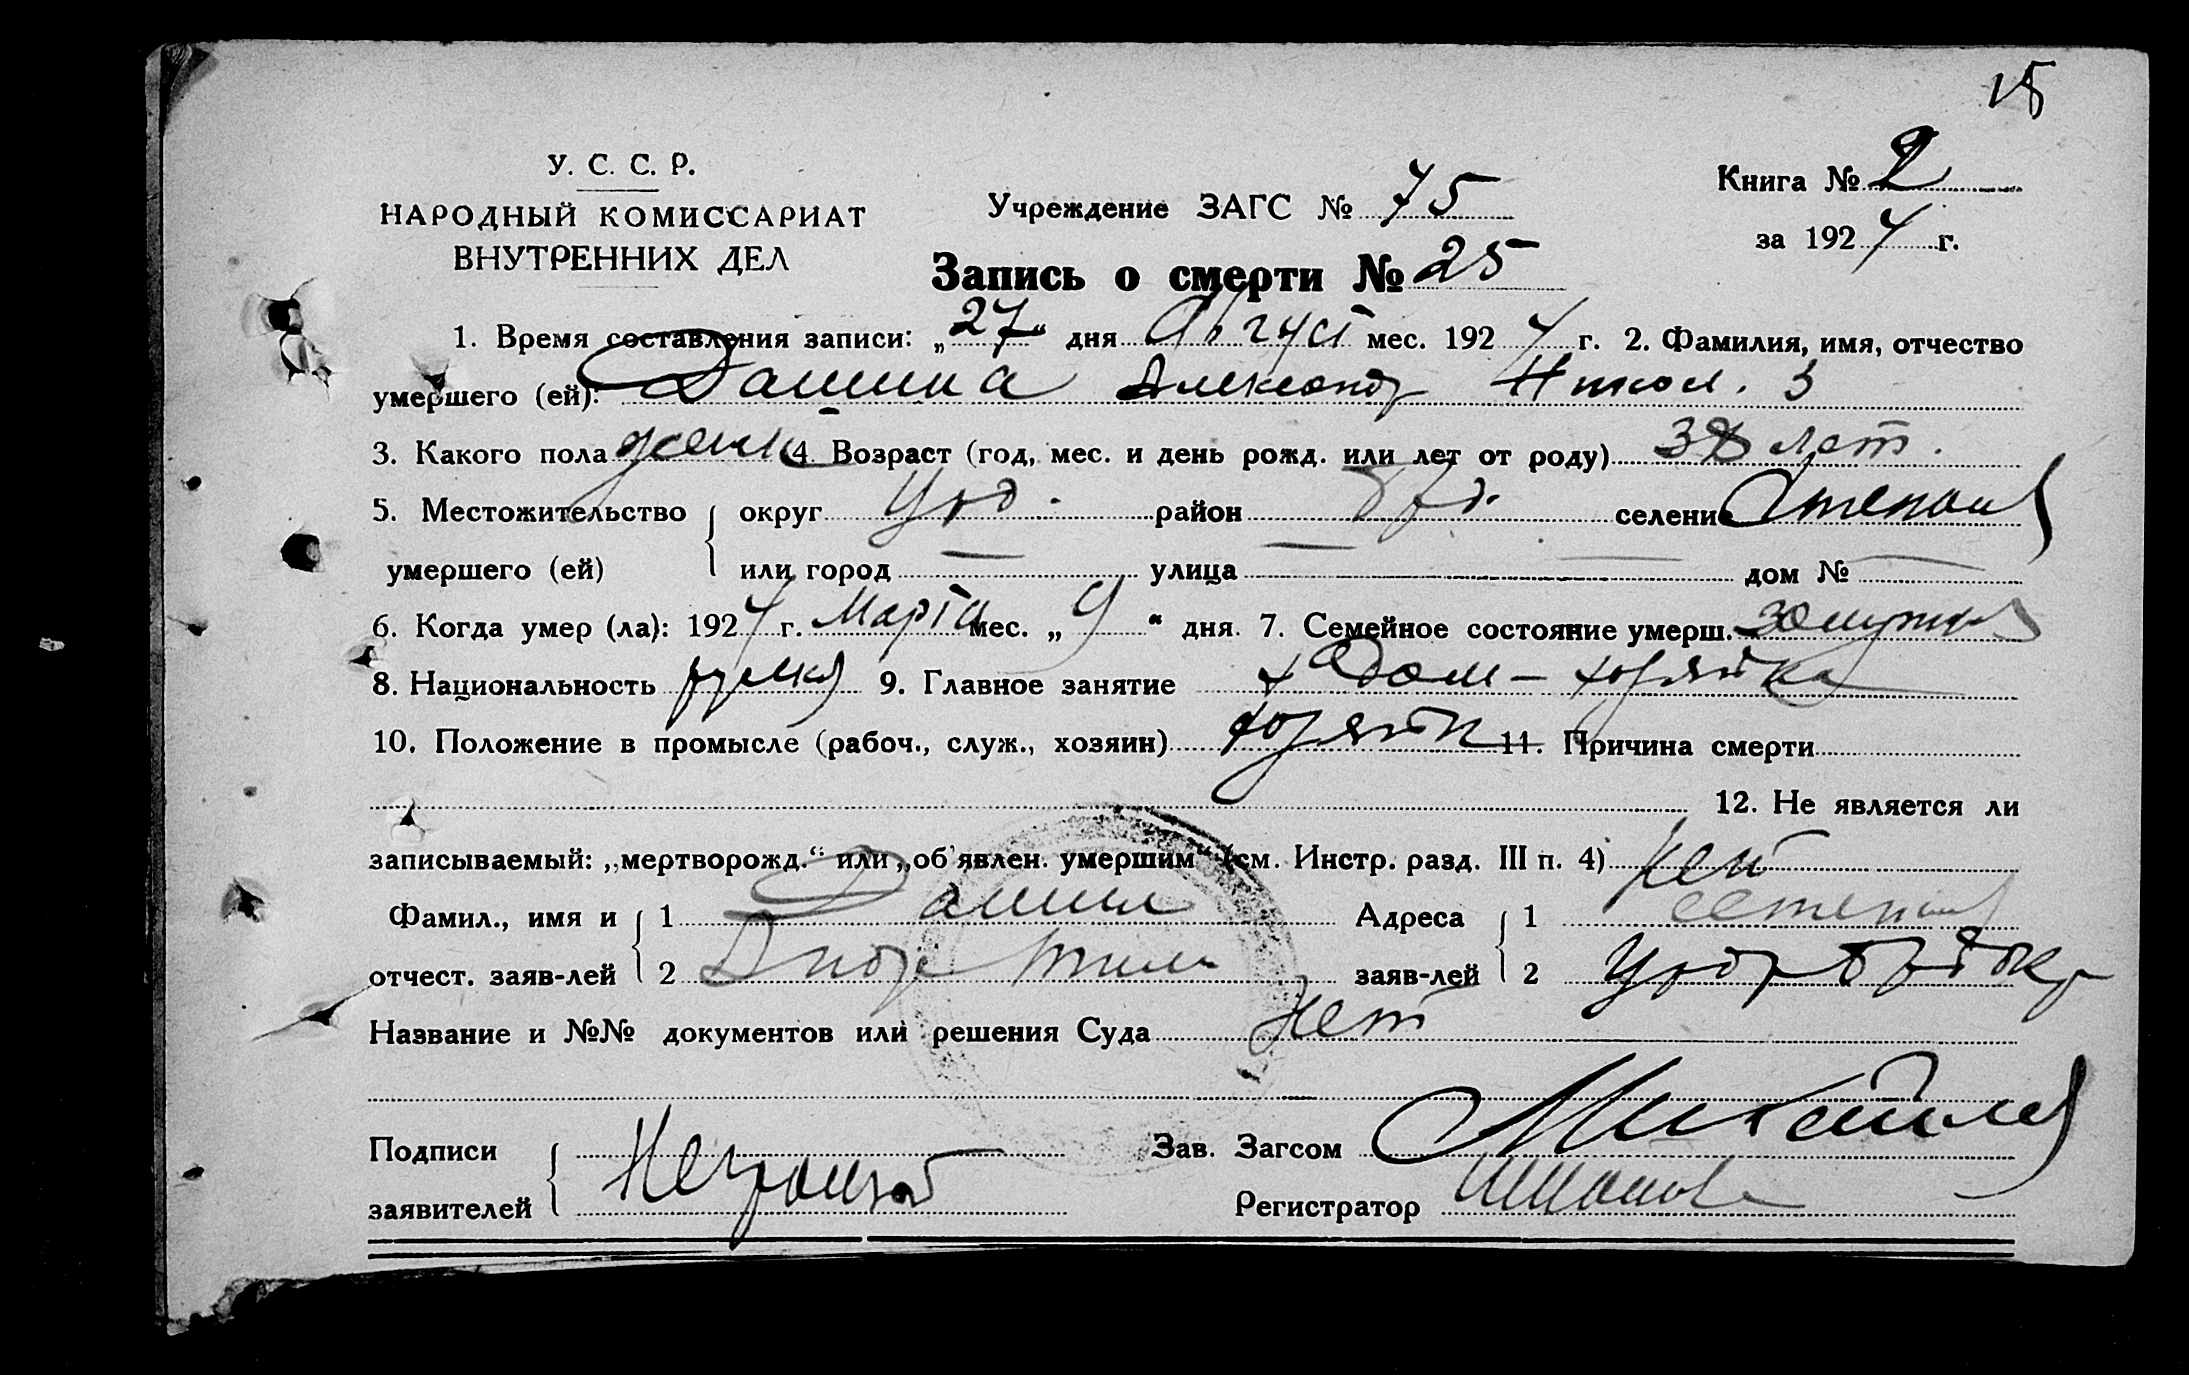 15
У. С. С. Р.
НАРОДНЫЙ КОМИССАРИАТ
ВНУТРЕННИХ ДЕЛ
Учреждение ЗАГС № 75
Книга № 2
за 1924 г.
Запись о смерти № 25
1. Время составления записи: „27“ дня Август мес. 1924 г. 2. Фамилия, имя, отчество
умершего (ей): Александр Никол.
3. Какого пола женск 4. Возраст (год, мес. и день рожд. или лет от роду) лет.
5. Местожительство округ район селение
умершего (ей) или город — улица — дом № —
6. Когда умер (ла): 1924 г. Марта мес. „9“ дня. 7. Семейное состояние умерш. замужня
8. Национальность 9. Главное занятие Дом-хозяйка
10. Положение в промысле (рабоч., служ., хозяин) хозяйк 11. Причина смерти
12. Не является ли
записываемый: „мертворожд.“ или „об'явлен. умершим“ (см. Инстр. разд. III п. 4) нет
Фамил., имя и 1 Адреса 1
отчест. заяв-лей 2 заяв-лей 2
Название и №№ документов или решения Суда нет
Подписи Зав. Загсом
заявителей Неграмот Регистратор